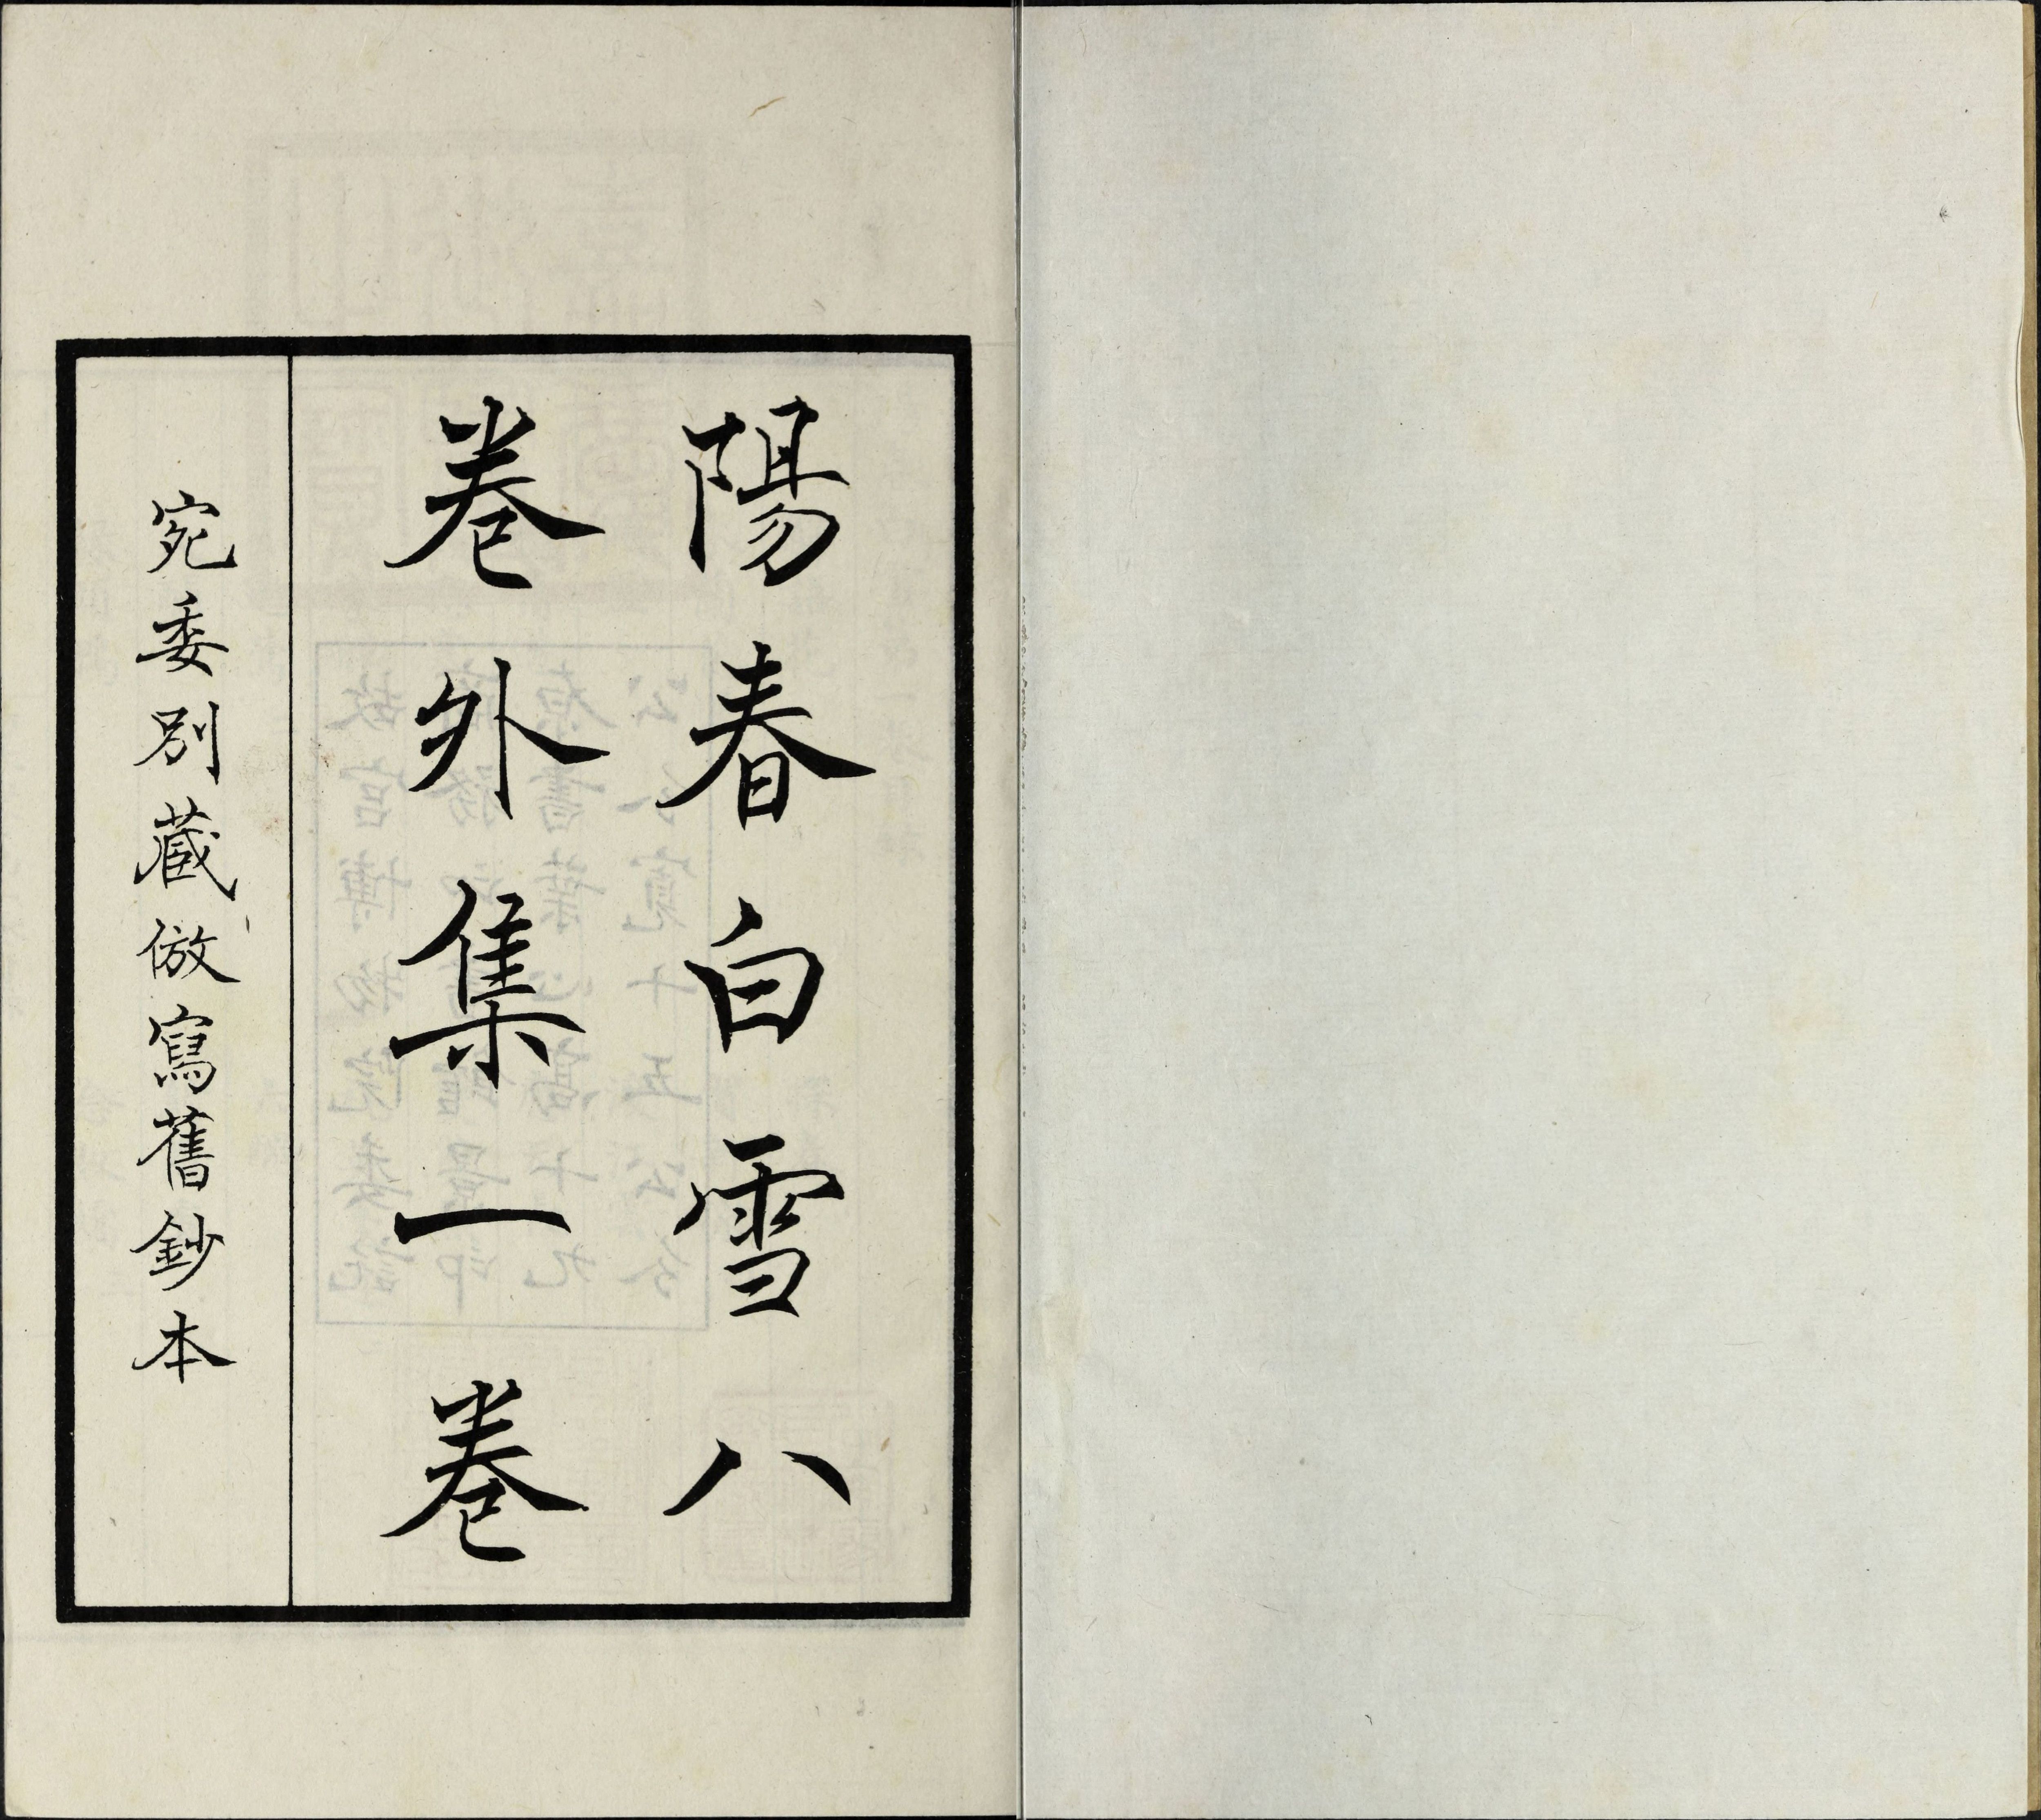 陽春白雪八
卷外集一卷
宛委別藏倣寫舊鈔本